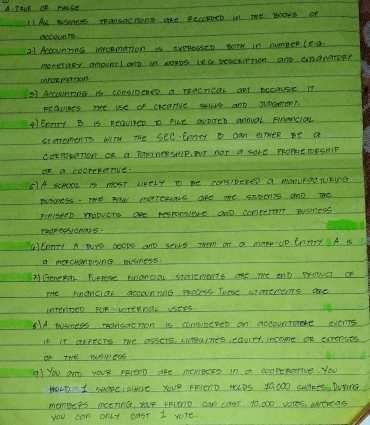 A. TRUE OR FALSE
1) ALL BUSINESS TRANSACTIONS ARE RECORDED IN THE BOOKS OF
ACCOUNTS.
2) ACCOUNTING INFORMATION IS EXPRESSED BOTH IN NUMBER (E.G
MONETARY AMOUNT) AND IN WORDS (E.G DESCRIPTION AND EXPLANATORY
INFORMATION.
3) ACCOUNTING IS CONSIDERED A PRACTICAL ART BECAUSE IT
REQUIRES THE USE OF CREATIVE SKILLS AND JUDGMENT.
4) ENTITY B IS REQUIRED TO FILE AUDITED ANNUAL FINANCIAL
STATEMENTS WITH THE SEC. ENTITY B CAN EITHER BE A
CORPORATION OR A PARTNERSHIP, BUT NOT A SOLE PROPRIETORSHIP
OR A COOPERATIVE.
5) A SCHOOL IS MOST LIKELY TO BE CONSIDERED A MANUFACTURING
BUSINESS - THE RAW MATERIALS ARE THE STUDENTS AND THE
FINISHED PRODUCTS ARE RESPONSIBLE AND COMPETENT BUSINESS
PROFESSIONALS.
6) ENTITY A BUYS GOODS AND SELLS THEM AT A MARK-UP. ENTITY A IS
A MERCHANDISING BUSINESS.
7) GENERAL PURPOSE FINANCIAL STATEMENTS ARE THE END PRODUCT OF
THE FINANCIAL ACCOUNTING PROCESS. THESE STATEMENTS ARE
INTENDED FOR INTERNAL USERS.
8) A BUSINESS TRANSACTION IS CONSIDERED AN ACCOUNTABLE EVENTS
IF IT AFFECTS THE ASSETS, LIABILITIES, EQUITY, INCOME OR EXPENSES
OF THE BUSINESS.
9) YOU AND YOUR FRIEND ARE MEMBERS IN A COOPERATIVE. YOU
HOLD 1 SHARE, WHILE YOUR FRIEND HOLDS 10,000 SHARES. DURING
MEMBERS MEETING, YOUR FRIEND CAN CAST 10,000 VOTES, WHEREAS
YOU CAN ONLY CAST 1 VOTE.